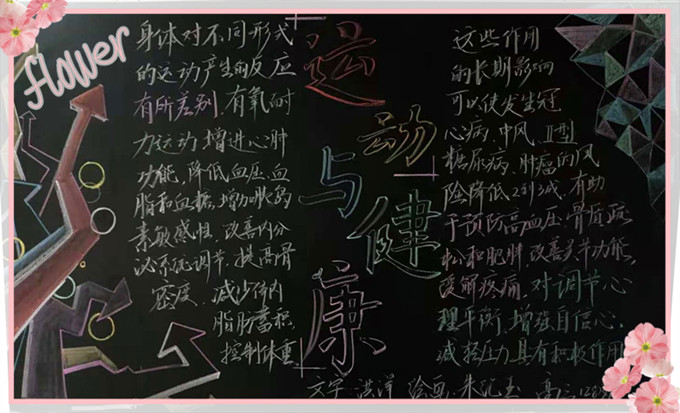 flower
身体对不同形式
的运动产生的反应
有所差别。有氧耐
力运动增进心肺
功能，降低血压、血
脂和血糖，增加胰岛
素敏感性，改善内分
泌系统调节，提高骨
密度、减少体内
脂肪蓄积，
控制体重
运动与健康
这些作用
的长期影响
可以使发生冠
心病、中风、II型
糖尿病、肿瘤的风
险降低2到3成，有助
于预防高血压、骨质疏
松和肥胖，改善关节功能，
缓解疼痛。对调节心
理平衡，增强自信心，
减轻压力具有积极作用
文字：洪洋 绘画：朱 高三